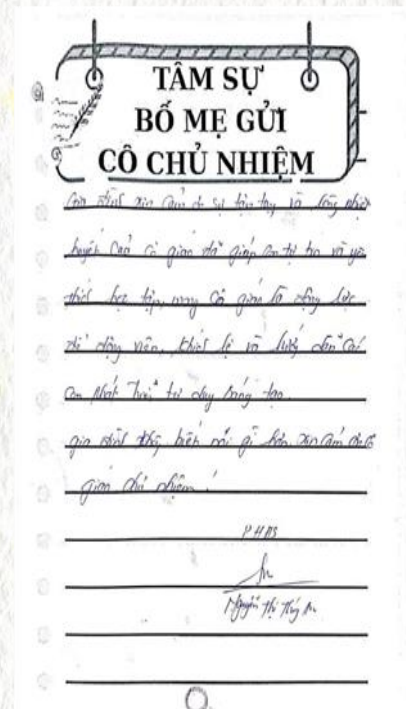 TÂM SỰ
BỐ MẸ GỬI
CÔ CHỦ NHIỆM
Gia đình xin cảm ơn sự tận tụy và lòng nhiệt
huyết của cô giáo đã giúp con tự tin và yêu
thích học tập, mong cô giáo là động lực
để động viên, khích lệ và hướng dẫn các
con phát huy tư duy sáng tạo.
gia đình không biết nói gì hơn, xin cảm ơn cô
giáo chủ nhiệm!
PHHS
Nguyễn Thị Thúy